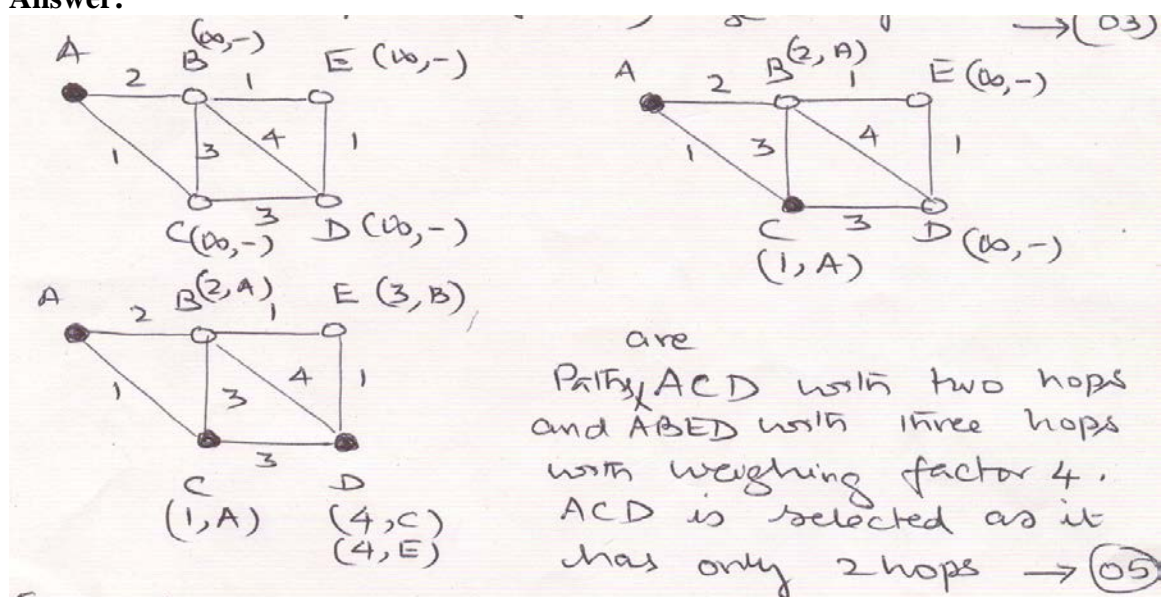 Answer:
→ (03)
A 2 B (∞,-) 1 E (∞,-)
1 3 4 1
3
C (∞,-) D (∞,-)
A 2 B (2,A) 1 E (∞,-)
1 3 4 1
3
C D (∞,-)
(1,A)
A 2 B (2,A) 1 E (3,B)
1 3 4 1
3
C D
(1,A) (4,C)
(4,E)
are
Paths ACD with two hops
and ABED with three hops
with weighing factor 4.
ACD is selected as it
has only 2 hops → (05)